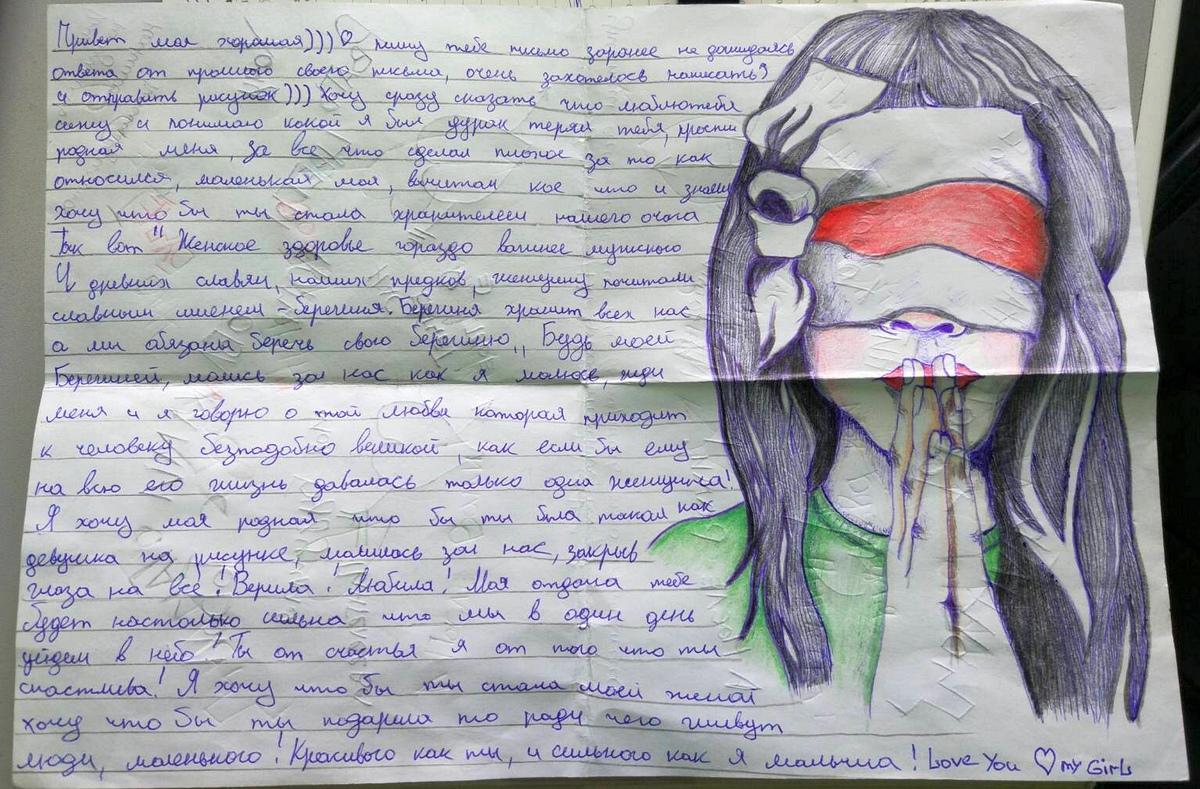 Привет моя хорошая)))♡ пишу тебе письмо заранее не дождидаясь
ответа от прошлого своего письма, очень захотелось написать?
и отправить рисунок))) Хочу сразу сказать что люблю тебя
сижу и понимаю какой я был дурак теряя тебя, прости
родная меня, за все что сделал плохое за то как
относился, маленькая моя, вычитал кое что и знаешь
хочу что бы ты стала хранителем нашего очага
Так вот "Женское здоровье гораздо важнее мужского
У древних славян, наших предков, женщину почитали
славным именем - берегиня. Берегиня хранит всех нас
а мы обязаны беречь свою берегиню,, Будь моей
Берегиней, молись за нас как я молюсь, жди
меня и я говорю о той любви которая приходит
к человеку безподобно великой, как если бы ему
на всю его жизнь давалась только одна женщина!
Я хочу моя родная что бы ты была такая как
девушка на рисунке, молилась за нас, закрыв
глаза на все! Верила! Любила! Моя отдача тебе
будет настолько сильна что мы в один день
уйдем в небо! Ты от счастья я от того что ты
счастлива! Я хочу что бы ты стала моей женой
хочу что бы ты подарила то ради чего живут
люди, маленького! Красивого как ты, и сильного как я малыша! Love You ♡ my Girls